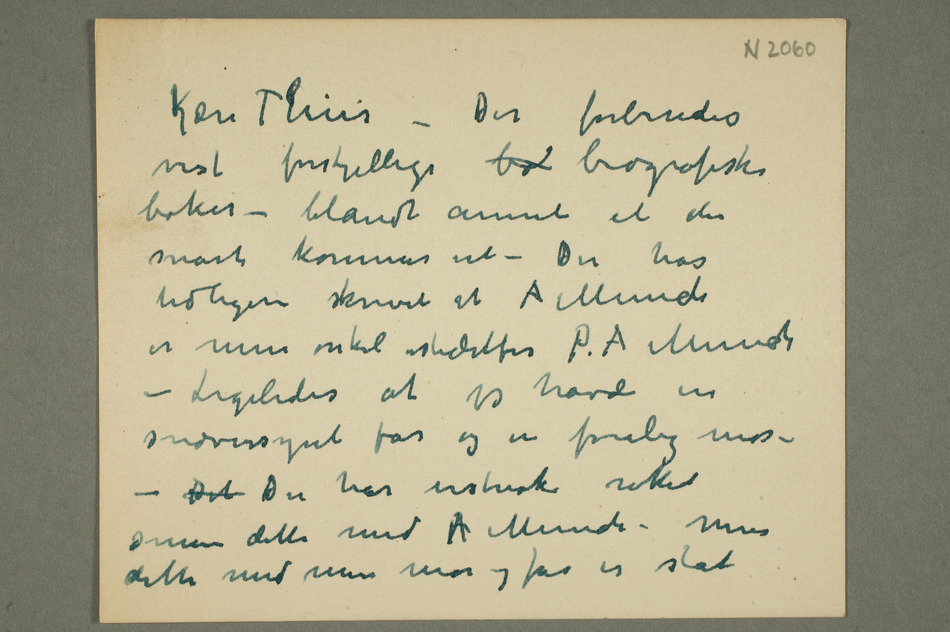 N 2060
Kære Thiis – Der forbredes
vist forskjellige bø biografiske
bøker – blandt annet et der
snart kommer ut – Du har
tidligere skrevet at A Munch
er min onkel istedetfor P. A Munch
– Ligeledes at jeg havde en
snæversynt far og en forelig mor –
– Det Du har rettet
dette med A Munch – Men
dette med min mor og far er slat